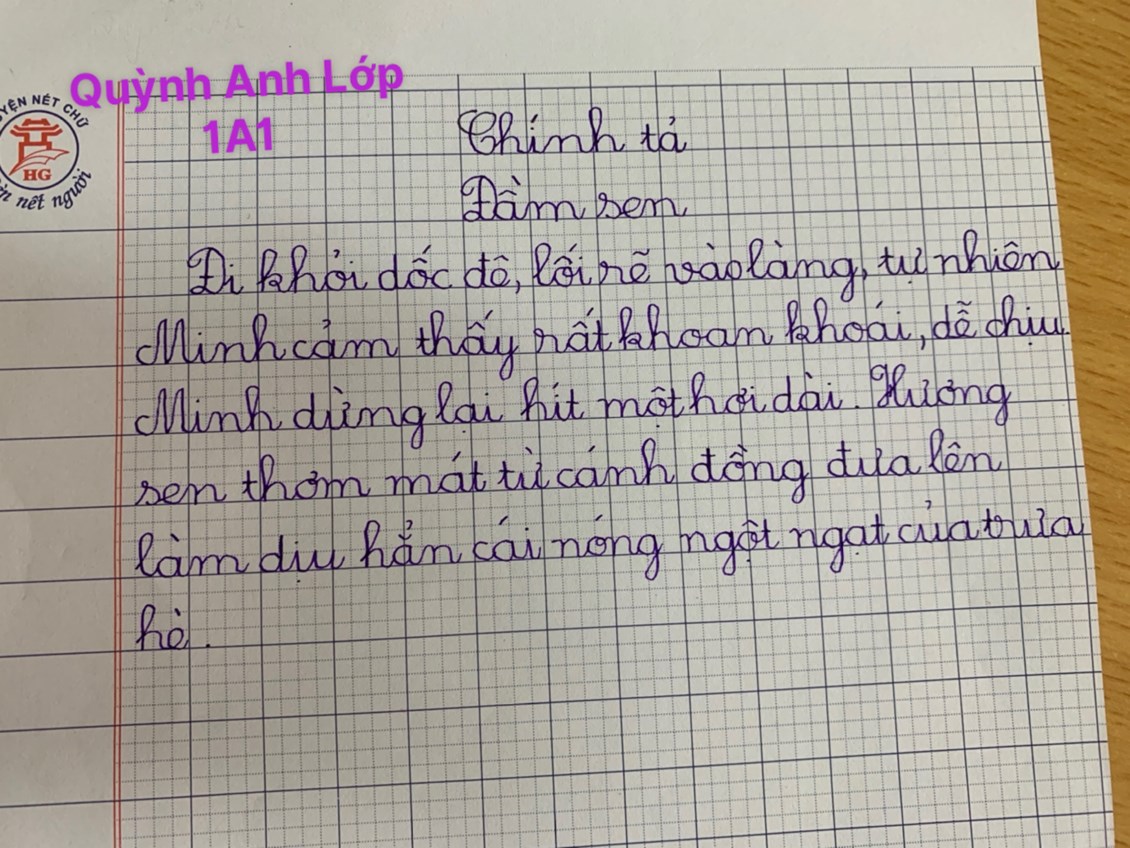 Quỳnh Anh Lớp
1A1
YỆN NÉT CHỮ
HG
nết người
Chính tả
Đầm sen
Đi khỏi dốc đê, lối rẽ vào làng, tự nhiên
Minh cảm thấy rất khoan khoái, dễ chịu.
Minh dừng lại hít một hơi dài. Hương
sen thơm mát từ cánh đồng đưa lên
làm dịu hẳn cái nóng ngột ngạt của trưa
hè.